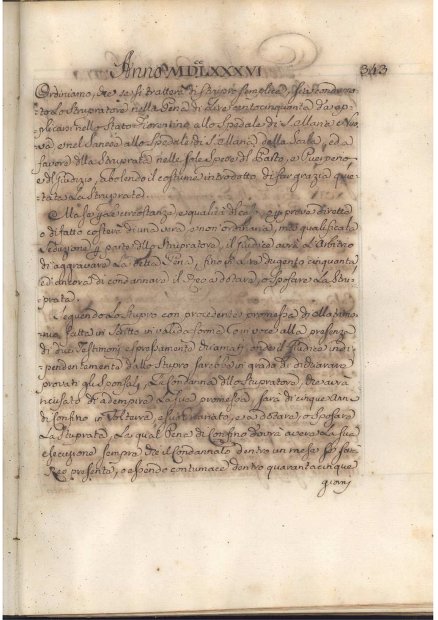 Anno MDCCLXXXVI 343
Ordiniamo, che se si tratterà di Stupro semplice, sia condannato
lo Stupratore nella Pena di Lire centocinquanta da ap-
plicarsi nello Stato Fiorentino allo Spedale di S. Maria Nuo-
va e nel Sanese allo Spedale di S. Maria della Scala, ed a
favore della Stuprata nelle sole Spese di Parto, e Puerperio
e di Giudizio, abolendo il costume introdotto di far grazia que-
 la Stuprata.
Ma se per le circostanze, e qualità di provare diretta
o di fatto costerà di una vera, e non ordinaria, ma qualificata
Seduzione per parte dello Stupratore, il Giudice avrà l'Arbitrio
di aggravare la detta Pena, fino a Lire dugento cinquanta
ed ancora di condannare il Reo a dotare, o sposare la Stu-
prata.
Seguendo lo Stupro con precedente promessa di Matrimo-
nio fatta in Scritto in valida forma, o in voce alla presenza
di due Testimoni espressamente chiamati, onde il Giudice indi-
pendentemente dallo Stupro sarebbe in grado di dichiarare
provati gli Sponsali, la Condanna dello Stupratore, che avrà
ricusato di adempire la sua promessa, sarà di cinque Anni
di Confino in Volterra, e suo , e a dotare, o sposare
la Stuprata, la qual Pena di Confino dovrà avere la sua
esecuzione sempre che il Condannato dentro un mese se sarà
Reo presente, o essendo contumace dentro quarantacinque
giorni